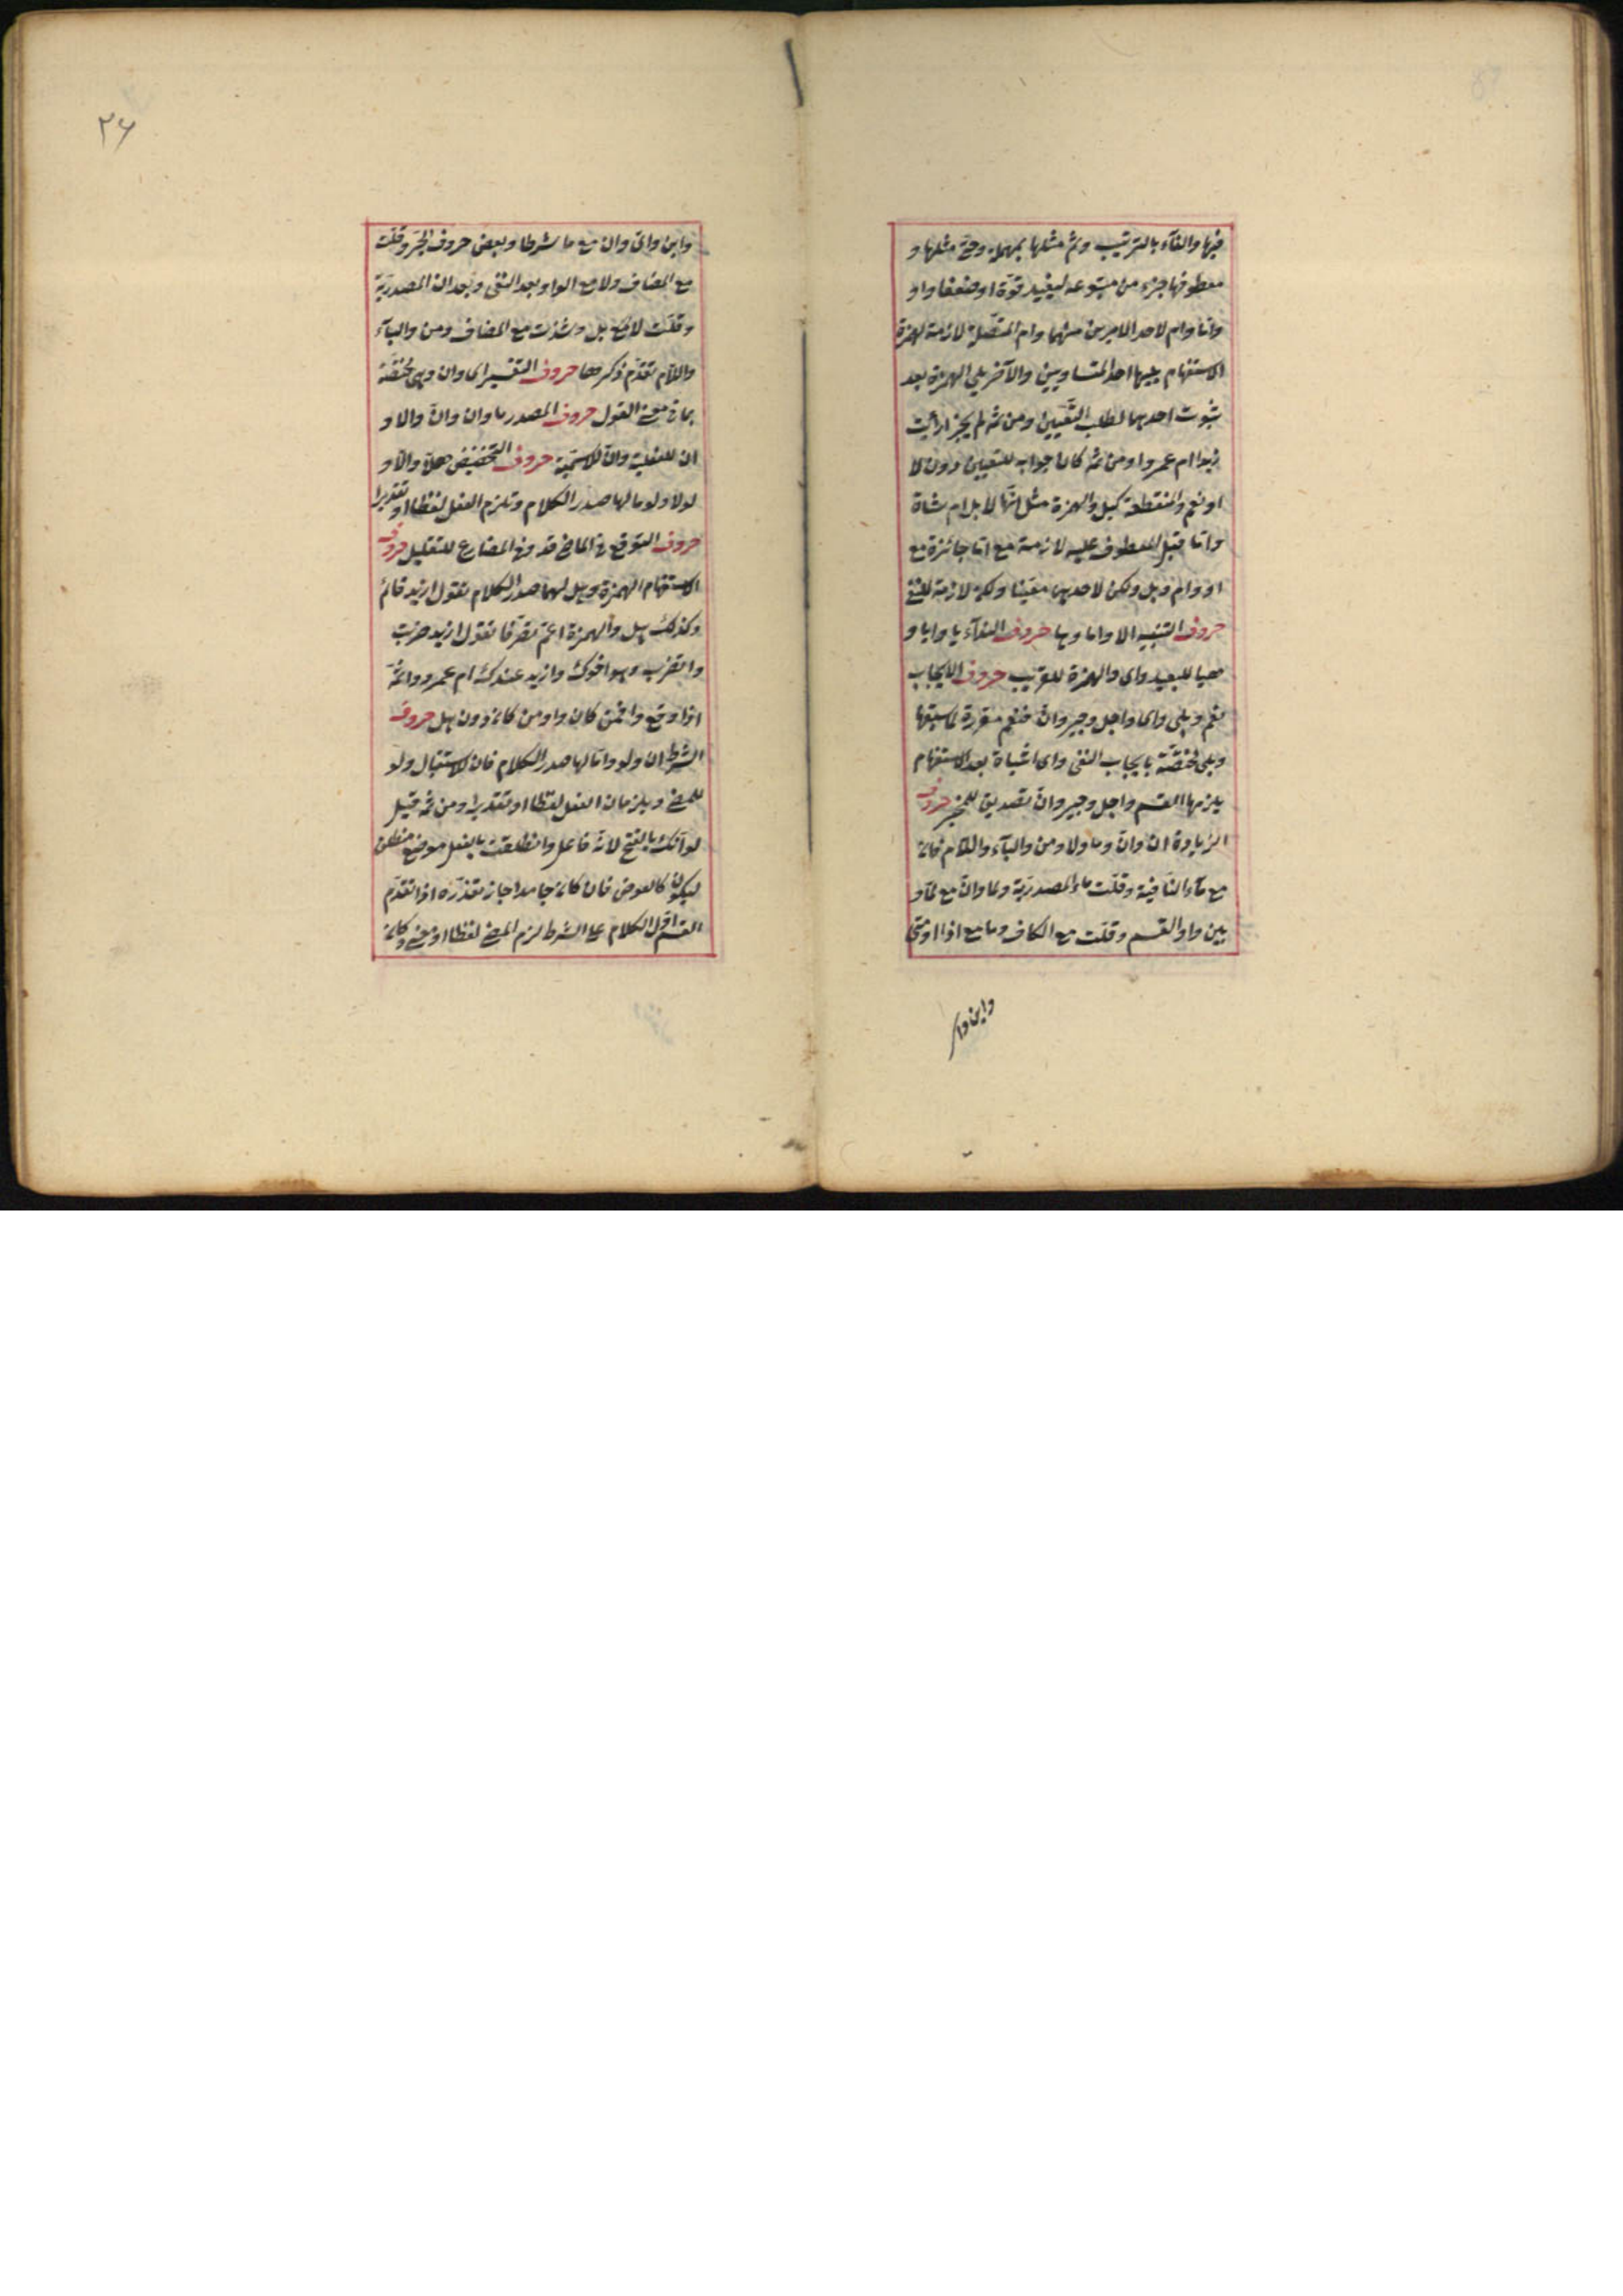 فيها والفآء بالترتيب وثم مثلها بمهلة وحتى مثلها و
معطوفها جزء من متبوعه ليفيد قوة او ضعفا واو
واما وام لاحد الامرين مبهما وام المتصلة لازمة لهمزة
الاستفهام يليها احد المتساويين والآخر يلي الهمزة بعد
ثبوت احدهما لطلب التعيين ومن ثم لم يجز ارأيت
زيدا ام عمروا ومن ثم كان جوابه للتعيين دون لا
او نعم والمنقطعة كبل والهمزة مثل انها لابل ام شاة
واما قبل المعطوف عليه لازمة مع اما جائزة مع
او وام وبل ولكن لاحدهما معينا ولكن لازمة للنفي
حروف التنبيه الا واما وها حروف الندآء يا وايا و
هيا للبعيد واى والهمزة للقريب حروف الايجاب
نعم وبلى واى واجل وجير وان فنعم مقررة لما سبقها
وبلى مختصة بايجاب النفى واى اثبات بعد الاستفهام
يلزمها القسم واجل وجير وان تصديق للمخبر حروف
الزيادة ان وان وما ولا ومن والبآء واللام فان
مع مآء النافية وقلت مآء المصدرية ولما وان مع لما و
بين واو القسم وقلت مع الكاف وما مع اذا او متى
واين واى
٢٦
واين واى وان مع ما شرطا وبعض حروف الجر وقلت
مع المضاف ولا مع الواو بعد النفى وبعد ان المصدرية
وقلت لا مع بل وشذت مع المضاف ومن والبآء
واللام تقدم ذكرها حروف التفسير اى وان وهى مختصة
بما فى معنى القول حروف المصدر ما وان وان والا و
ان للفعلية وان للاسمية حروف التحضيض هلا والا و
لولا ولوما لها صدر الكلام وتلزم الفعل لفظا او تقديرا
حروف التوقع فى الماضى قد وفى المضارع للتقليل حروف
الاستفهام الهمزة وهل لهما صدر الكلام تقول ازيد قائم
وكذلك هل والهمزة اعم تصرفا تقول ازيد ضربت
واتضرب وهو اخوك وازيد عندك ام عمرو واثم
اذا وقع وافمن كان واومن كان دون هل حروف
الشرط ان ولو واما لها صدر الكلام فان للاستقبال ولو
للمضى ويلزمان الفعل لفظا او تقديرا ومن ثم قيل
لو انك بالفتح لانه فاعل وانطلقت بالفعل موضع منطلق
ليكون كالعوض فان كان جامدا جاز تعذره اذا تقدم
القسم اول الكلام على الشرط لزم المضى لفظا او معنى وكان